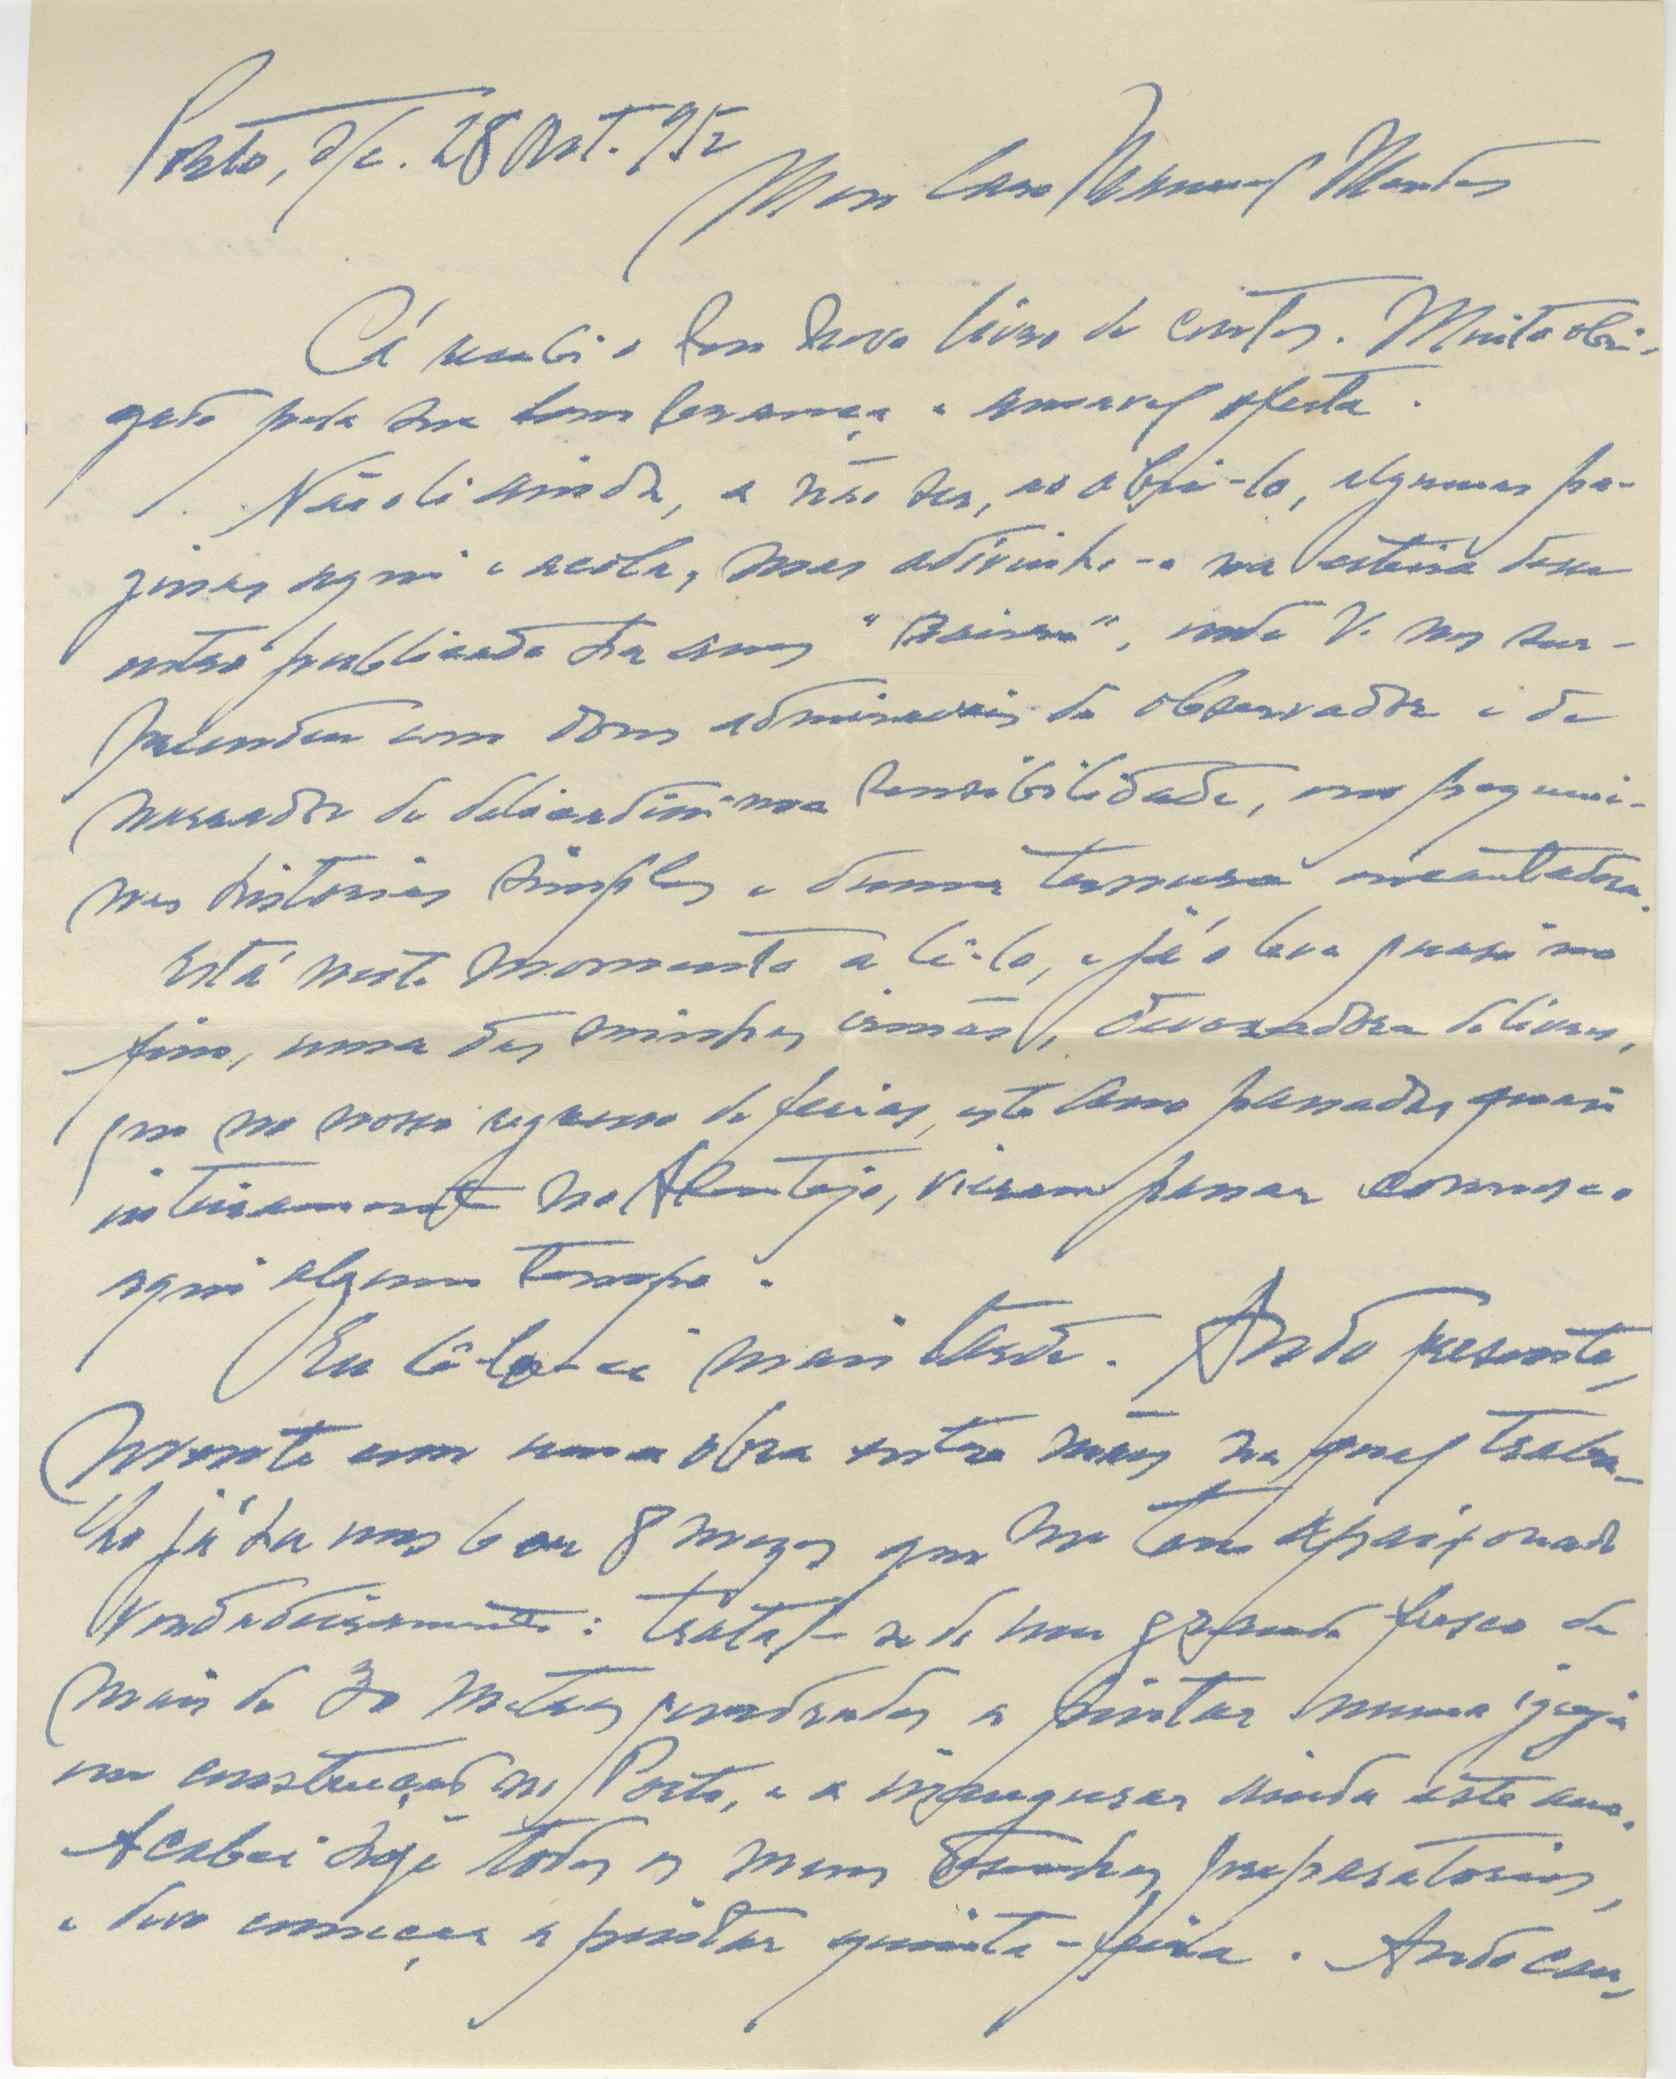 Porto, s/c. 28 Out. 952
Meu Caro Manuel Mendes
Cá recebi o seu novo livro de contos. Muito obri-
gado pela sua lembrança e amavel oferta.
Não o li ainda, a não ser, ao abri-lo, algumas pa-
ginas aqui e acolá, mas adivinho-o na esteira desse
outro publicado ha anos "Bairro", onde V. nos sur-
preendeu com dons admiraveis de observador e de
narrador de delicadissima sensibilidade, em pequeni-
nas historias simples e duma ternura encantadora.
Está neste momento a lê-lo, e já o leva quasi no
fim, uma das minhas irmãs, devoradora de livros,
que no nosso regresso de ferias, este ano passadas quasi
inteiramente no Alentejo, vieram passar comnosco
aqui algum tempo.
Eu lê-lo-ei mais tarde. Ando presente-
mente com uma obra entre mãos na qual traba-
lho já ha uns 6 ou 8 mezes que me tem apaixonado
verdadeiramente: trata-se de um grande fresco de
mais de 30 metros quadrados a pintar numa igreja
em construção no Porto, e a inaugurar ainda este ano.
Acabei hoje todos os meus desenhos preparatorios,
e devo começar a pintar quinta-feira. Ando can-